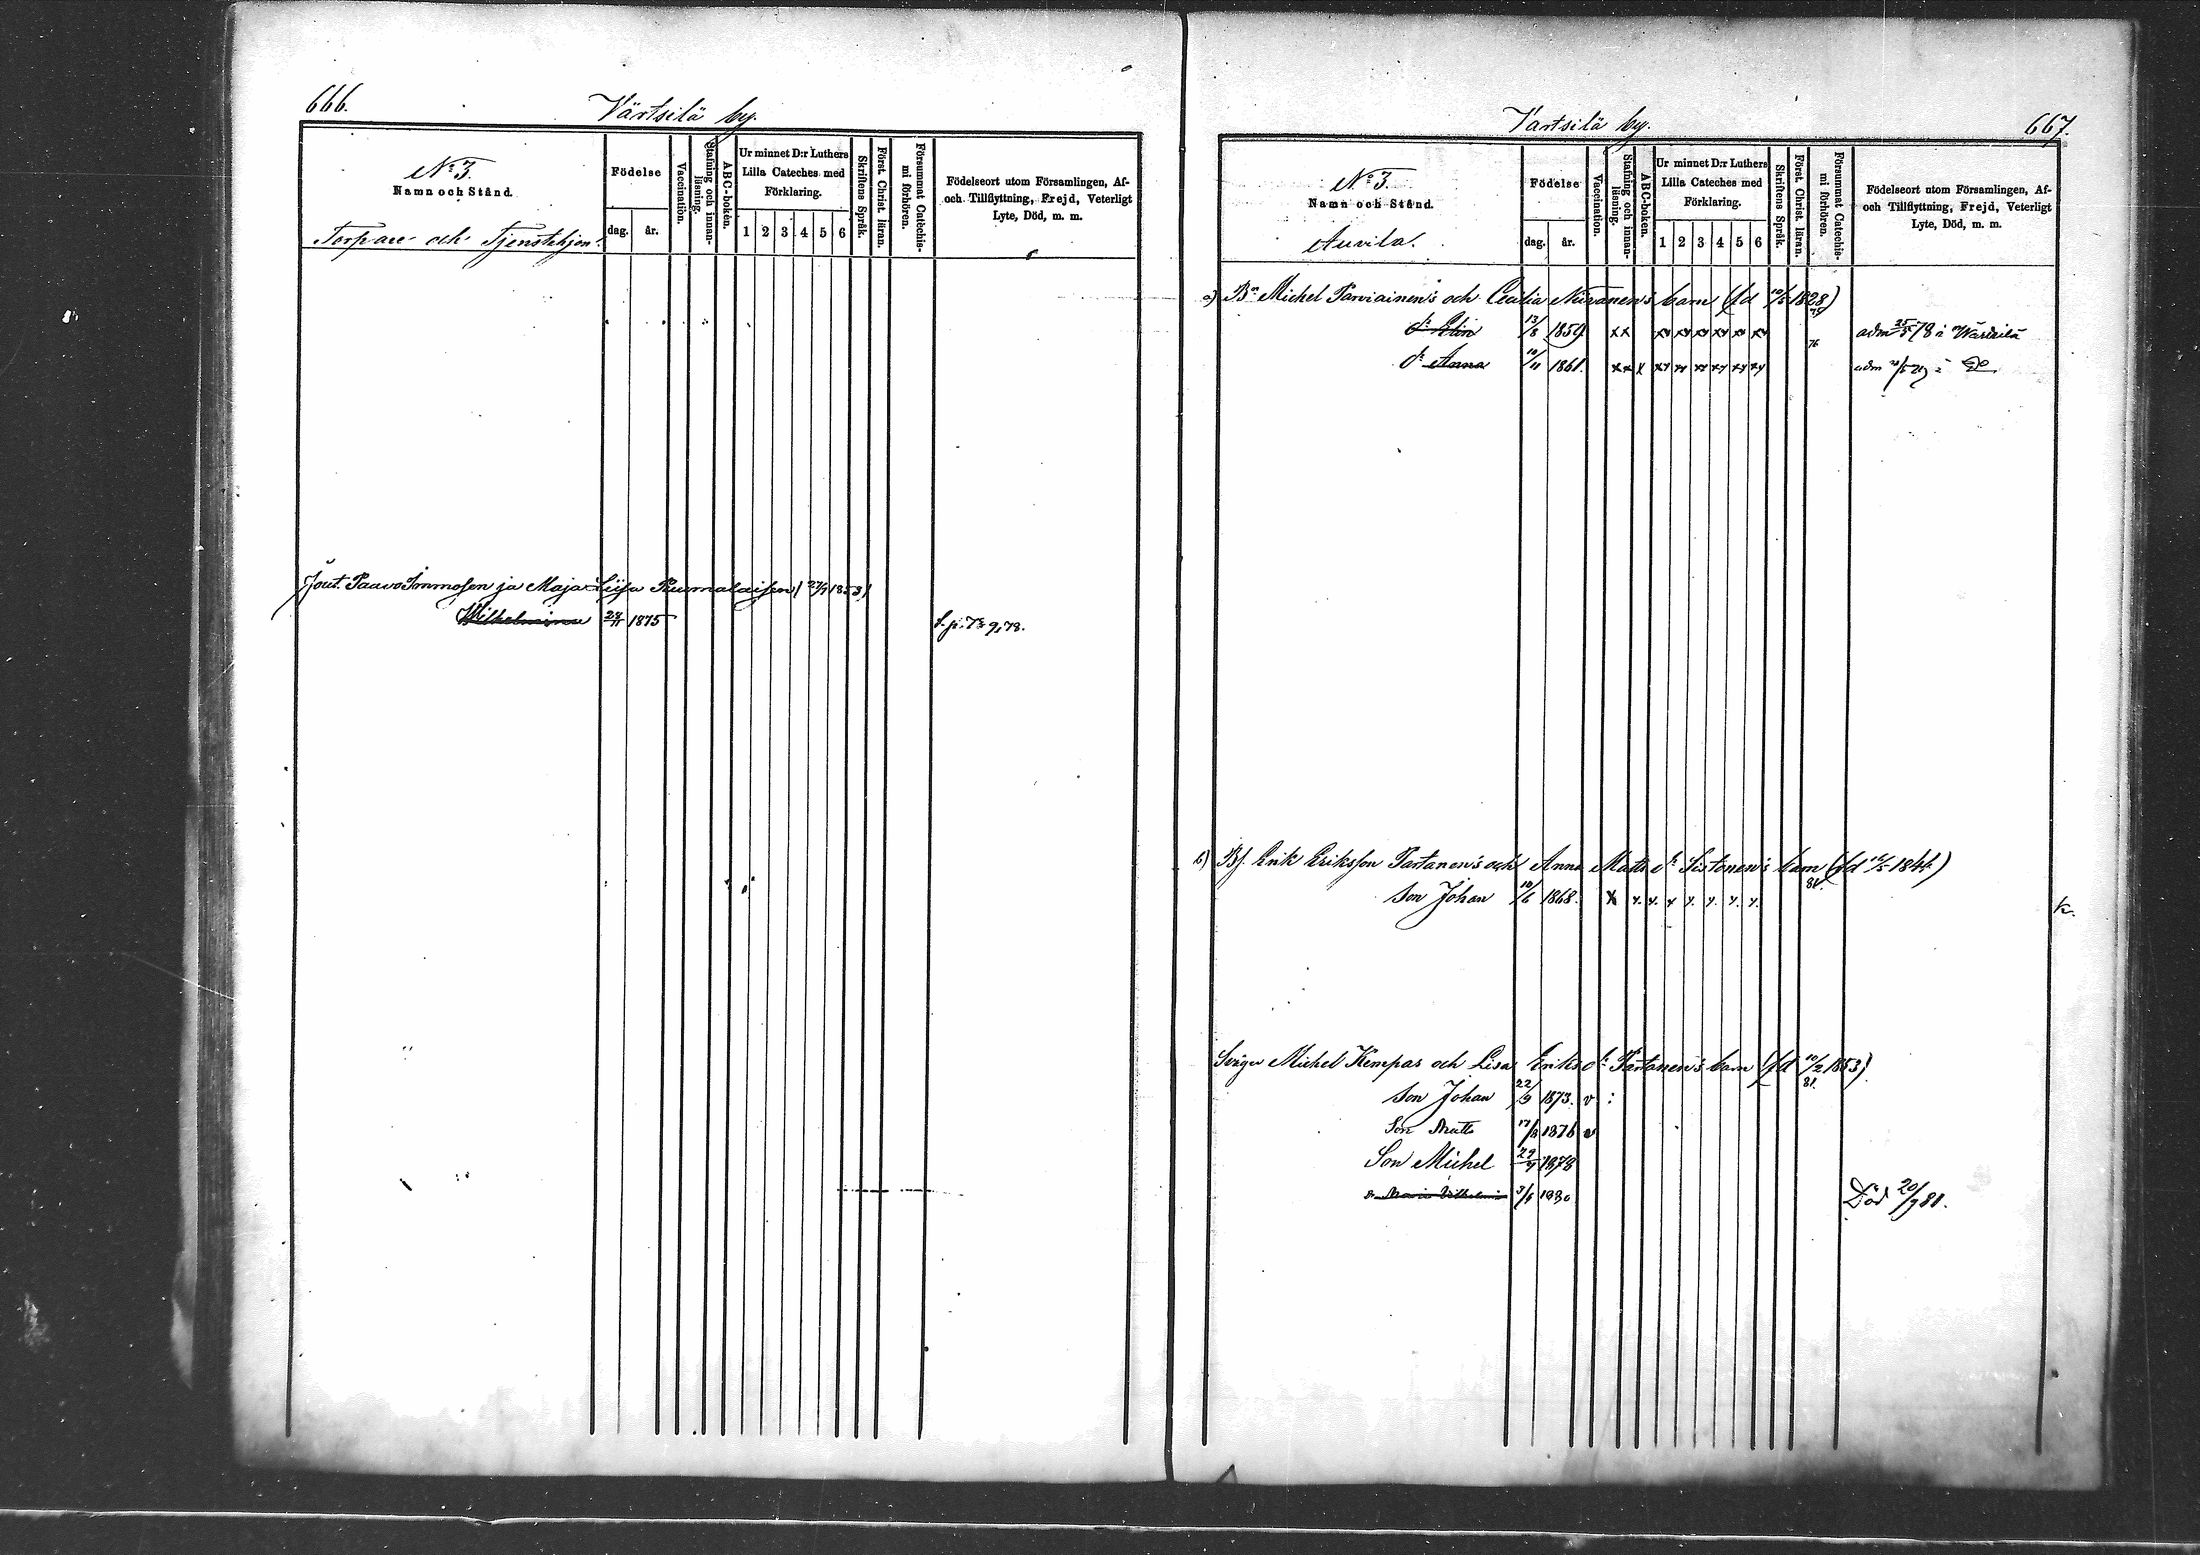 666.
Värtsilä by.
No 3.
Namn och Stånd.
Torpare och Tjenstehjon.
Födelse
dag. år.
Vaccination.
Stafning och innan-läsning.
ABC-boken.
Ur minnet D:r Luthers Lilla Cateches med Förklaring.
1 2 3 4 5 6
Skriftens Språk.
Först Christ. läran.
Försummat Catechis-mi förhören.
Födelseort utom Församlingen, Af- och Tillflyttning, Frejd, Veterligt Lyte, Död, m. m.
Jout. Paavo Immosen ja Maja Liisa Ruumalaisen ( 27/9 1853)
Wilhelmina 24/11 1875
S. p. 78 9,78.
Värtsilä by.
667.
No 3.
Namn och Stånd.
Auvila.
Födelse
dag. år.
Vaccination.
Stafning och innan-läsning.
ABC-boken.
Ur minnet D:r Luthers Lilla Cateches med Förklaring.
1 2 3 4 5 6
Skriftens Språk.
Först. Christ. läran.
Försummat Catechis-mi förhören.
Födelseort utom Församlingen, Af- och Tillflyttning, Frejd, Veterligt Lyte, Död, m. m.
a) Bn Michel Parviainen's och Cecilia Niiranen's barn (fd 10/5 1828)
dr Elin 13/8 1859 xx xx xx xx xx xx xx adm 25/5 78 i Wärtsilä
76
dr Anna 10/11 1861. xx x xx xx xx xx xx xx adm i Do
b) Bf. Erik Eriksson Partanen's och Anna Matts dr Sistonen's barn (fd 1844)
81.
Son Johan 10/6 1868. x x. x. x x. x. x. x.
Svåger Michel Kempas och Lisa Eriks dr Partanen's barn (fd 10/2 1853)
81.
Son Johan 22/9 1873. v :
Son Matts 17/8 1876 v
Son Michel 29/4 1878
dr Maria Wilhelmina 3/4 1880 Död 20/7 81.